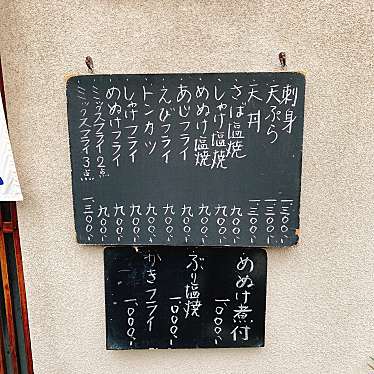 刺身 一、三〇〇、
天ぷら 一、三〇〇、
天丼 一、三〇〇、
さば塩焼 九〇〇、
しゃけ塩焼 九〇〇、
めぬけ塩焼 九〇〇、
あじフライ 九〇〇、
えびフライ 九〇〇、
トンカツ 九〇〇、
しゃけフライ 九〇〇、
めぬけフライ 九〇〇、
ミックスフライ2点 九〇〇、
ミックスフライ3点 一、三〇〇、
めぬけ煮付 一、〇〇〇、
ぶり塩焼 一、〇〇〇、
かきフライ 一、〇〇〇、